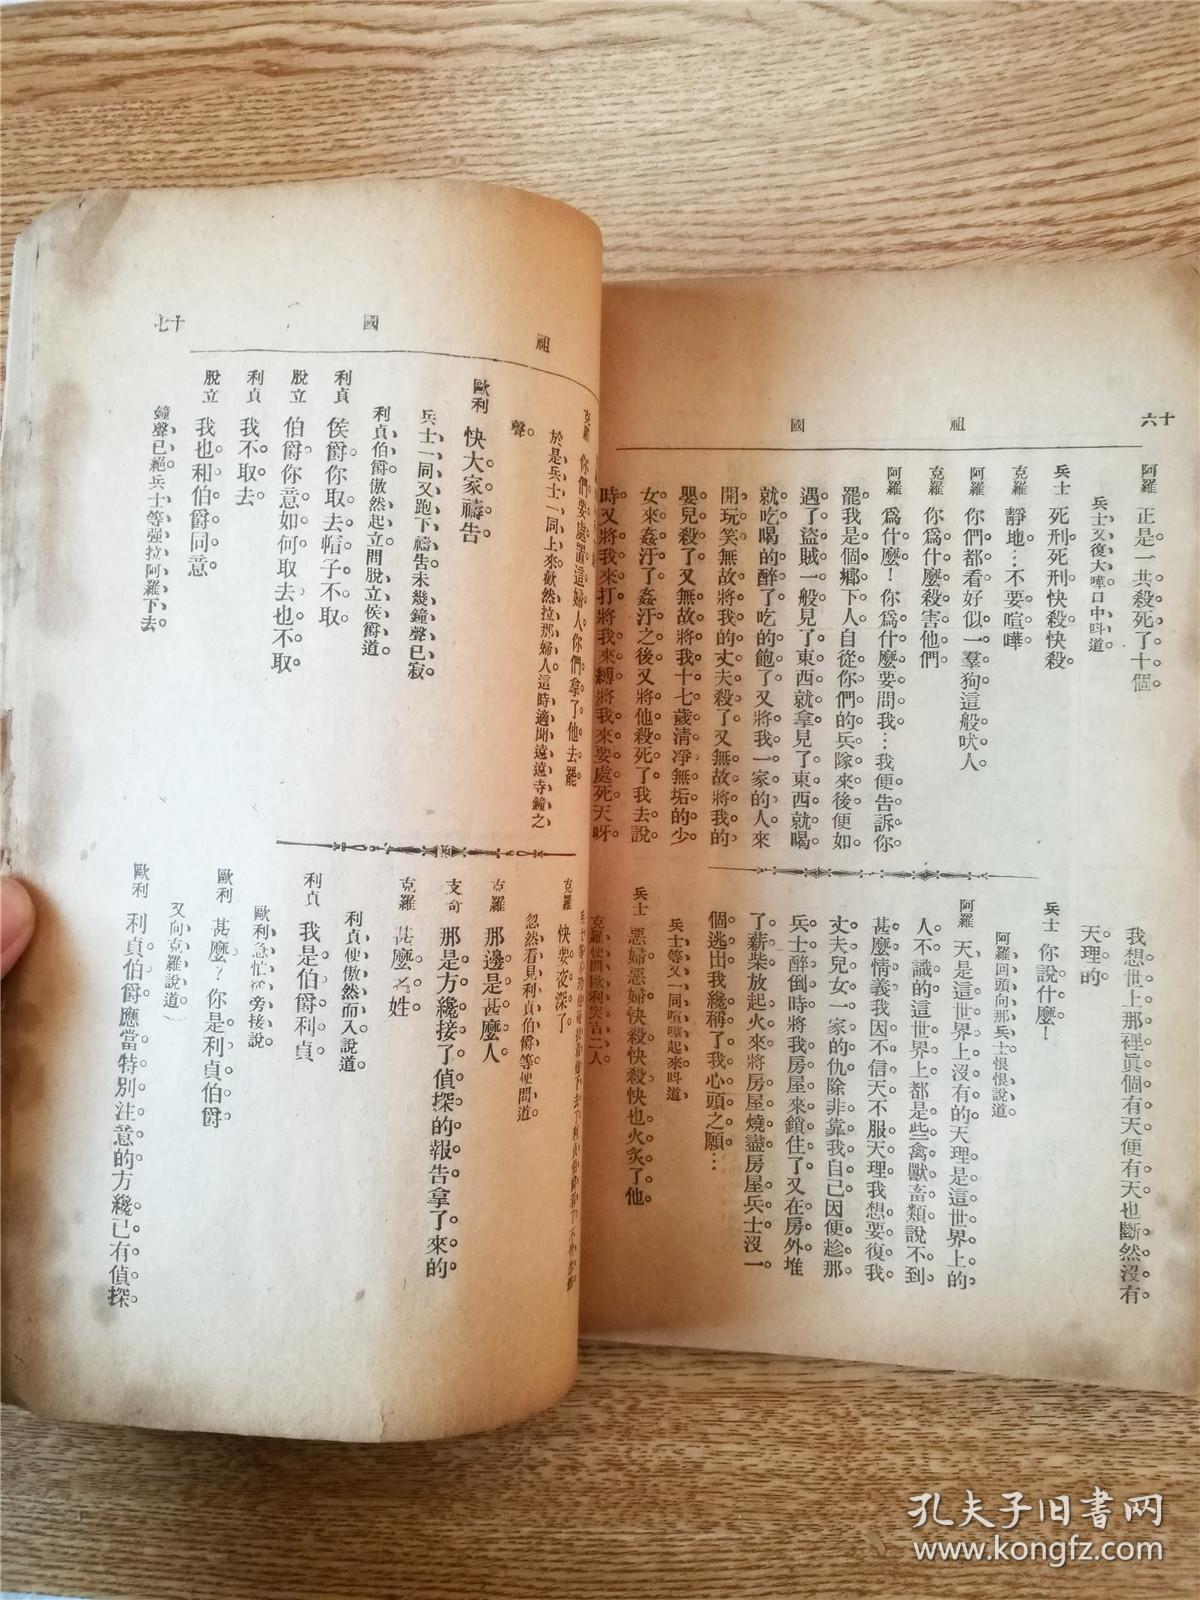 祖國
十六
阿羅 正是一共殺死了十個。
兵士又復大嘩口中呌道
兵士 死刑死刑快殺快殺。
克羅 靜地…不要喧嘩
阿羅 你們都看好似一羣狗這般吠人。
克羅 你爲什麼殺害他們
阿羅 爲什麼！你爲什麼要問我…我便告訴你
罷我是個鄉下人自從你們的兵隊來後便如
遇了盜賊一般見了東西就拿見了東西就喝
就吃喝的醉了吃的飽了又將我一家的人來
開玩笑無故將我的丈夫殺了又無故將我的
嬰兒殺了又無故將我十七歲清凈無垢的少
女來姦汙了姦汙之後又將他殺死了我去說
時又將我來打將我來縛將我來要處死天呀
我想世上那裡眞個有天便有天也斷然沒有
天理的
兵士 你說什麼！
阿羅回頭向那兵士恨恨說道
阿羅 天是這世界上沒有的天理是這世界上的
人不識的這世界上都是些禽獸畜類說不到
甚麼情義我因不信天不服天理我想要復我
丈夫兒女一家的仇除非靠我自己因便趁那
兵士醉倒時將我房屋來鎖住了又在房外堆
了薪柴放起火來將房屋燒盡房屋兵士沒一
個逃出我纔稱了我心頭之願…
兵士等又一同喧嘩起來呌道
兵士 惡婦惡婦快殺快殺快也火炙了他。
克羅便問歐利突吉二人
祖國
十七
克羅 你們要處置這婦人你們拿了他去罷
於是兵士一同上來歡然拉那婦人這時適聞遠遠寺鐘之
聲。
歐利 快大家禱告
兵士一同又跑下禱告未幾鐘聲已寂
利貞伯爵傲然起立問脫立侯爵道
利貞 侯爵你取去帽子不取
脫立 伯爵你意如何取去也不取
利貞 我不取去。
脫立 我也和伯爵同意
鐘聲已絕兵士等強拉阿羅下去
克羅 快要夜深了。
忽然看見利貞伯爵等便問道
克羅 那邊是甚麼人
支奇 那是方纔接了偵探的報告拿了來的
克羅 甚麼名姓
利貞便傲然而入說道
利貞 我是伯爵利貞
歐利急忙從旁接說
歐利 甚麼？你是利貞伯爵
又向克羅說道）
利貞伯爵應當特別注意的方纔已有偵探
孔夫子旧書网
www.kongfz.com